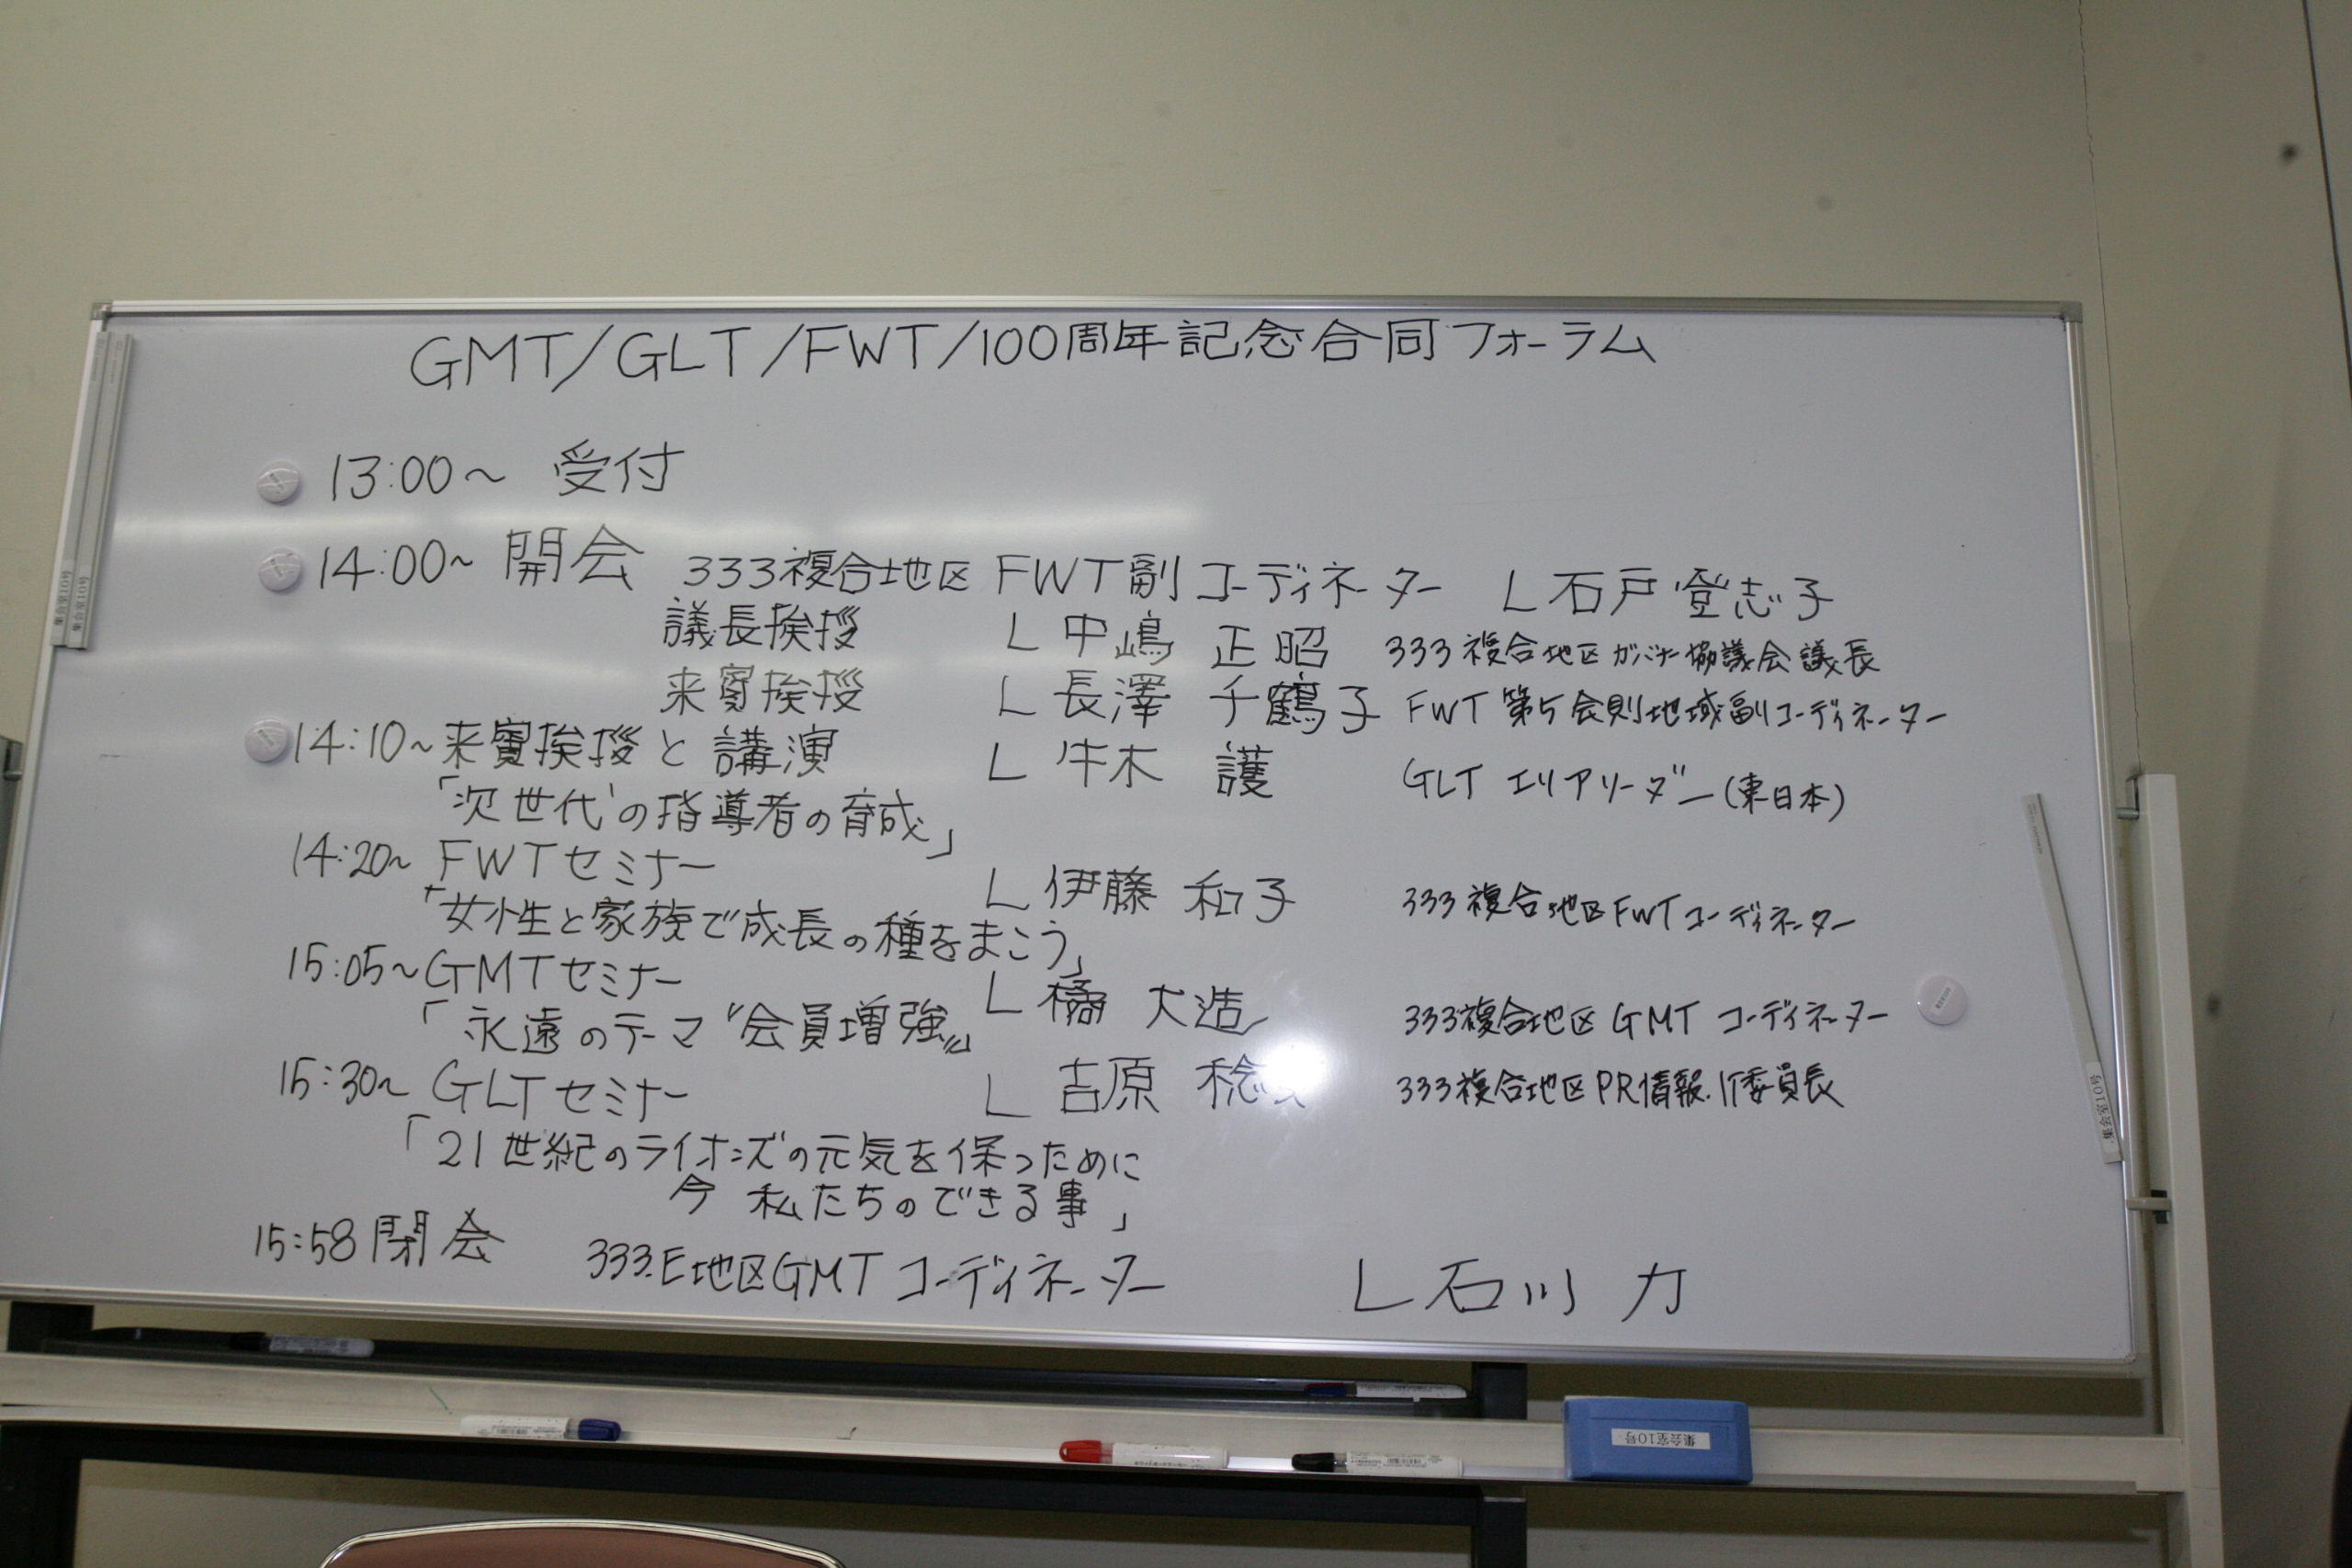 GMT/GLT/FWT/100周年記念合同フォーラム
13:00～ 受付
14:00～ 開会 333複合地区 FWT副コーディネーター L 石戸 登志子
議長挨拶 L 中嶋 正昭 333複合地区ガバナー協議会議長
来賓挨拶 L 長澤 千鶴子 FWT 第5会則地域副コーディネーター
14:10～来賓挨拶と講演 L 牛木 護 GLT エリアリーダー(東日本)
「次世代の指導者の育成」
14:20～ FWTセミナー L 伊藤 和子 333複合地区FWTコーディネーター
「女性と家族で成長の種をまこう」
15:05～GMTセミナー L 橘 大造 333複合地区 GMT コーディネーター
「永遠のテーマ“会員増強”」
15:30～ GLTセミナー L 吉原 稔 333複合地区PR情報.IT委員長
「21世紀のライオンズの元気を保つために
今 私たちのできる事」
15:58 閉会 333.E地区GMTコーディネーター L 石川 力
集会室10号
集会室10号
集会室10号
集会室10号